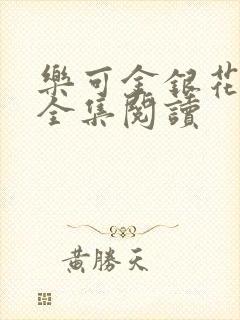 樂可金銀花
全集閱讀
黃勝天